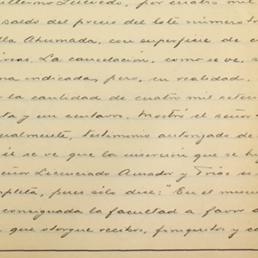 Guillermo Quevedo, por cuatro mil
saldo del precio del lote número
lla Ahumada, con superficie de
áreas. La cancelación, como se ve, s
ma indicada, pero, en realidad,
la cantidad de cuatro mil seten
ta y un centavos. Mostró el señor
ualmente, testimonio autorizado de
se ve que la inserción que se hi
eñor Licenciado Amador y Trías
pleta, pues sólo dice: "En el mismo
consignada la facultad a favor
que otorgue recibos, finiquitos y ca